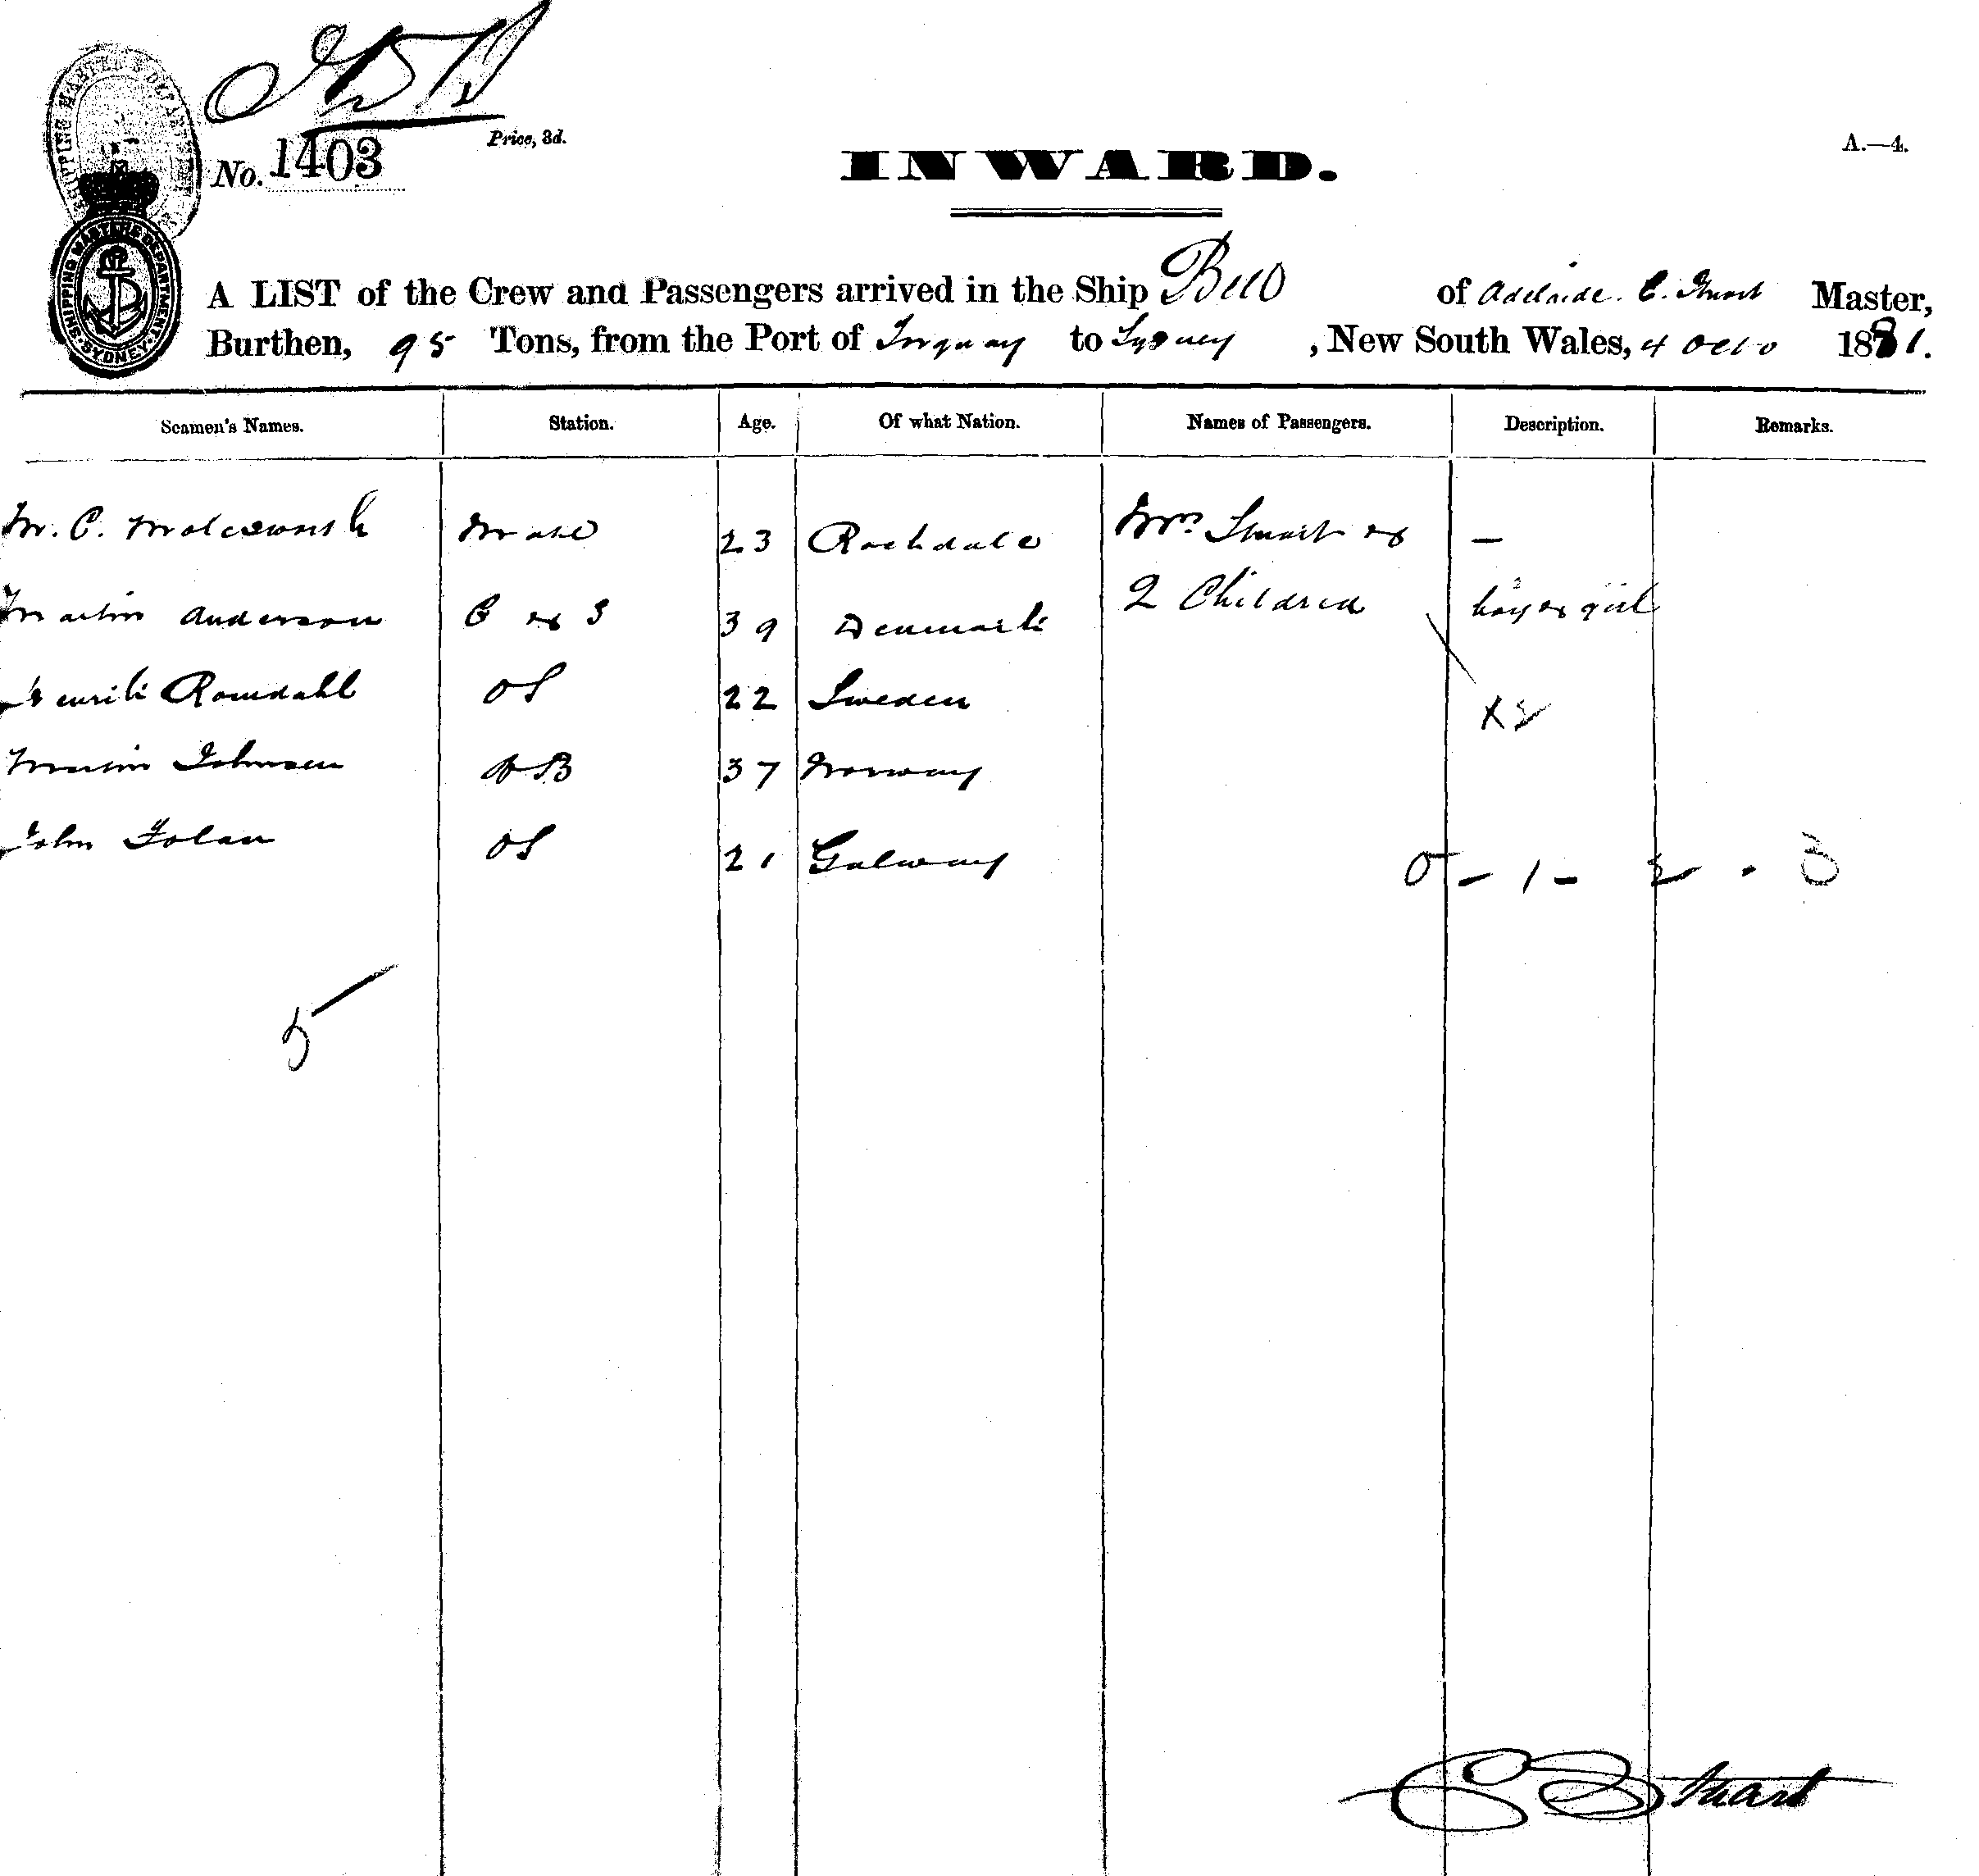 Price, 3d.
No. 1403
INWARD.
A.—4.
SHIPPING MASTER'S DEPARTMENT
SHIPPING MASTERS DEPARTMENT SYDNEY
A LIST of the Crew and Passengers arrived in the Ship of Adelaide. C. Stuart Master,
Burthen, 95 Tons, from the Port of Torquay to Sydney, New South Wales, 4 Octo 1881.
Seamen's Names. Station. Age. Of what Nation. Names of Passengers. Description. Remarks.
M. C. Molesworth Mate 23 Rochdale Mrs Stuart & —
Martin Anderson C & S 39 Denmark 2 Children boy & girl
Henrik Romdahl OS 22 Sweden
Martin Johnsen AB 37 Norway
John Folan OS 21 Galway
0 - 1 - 2 . 3
5
C Stuart